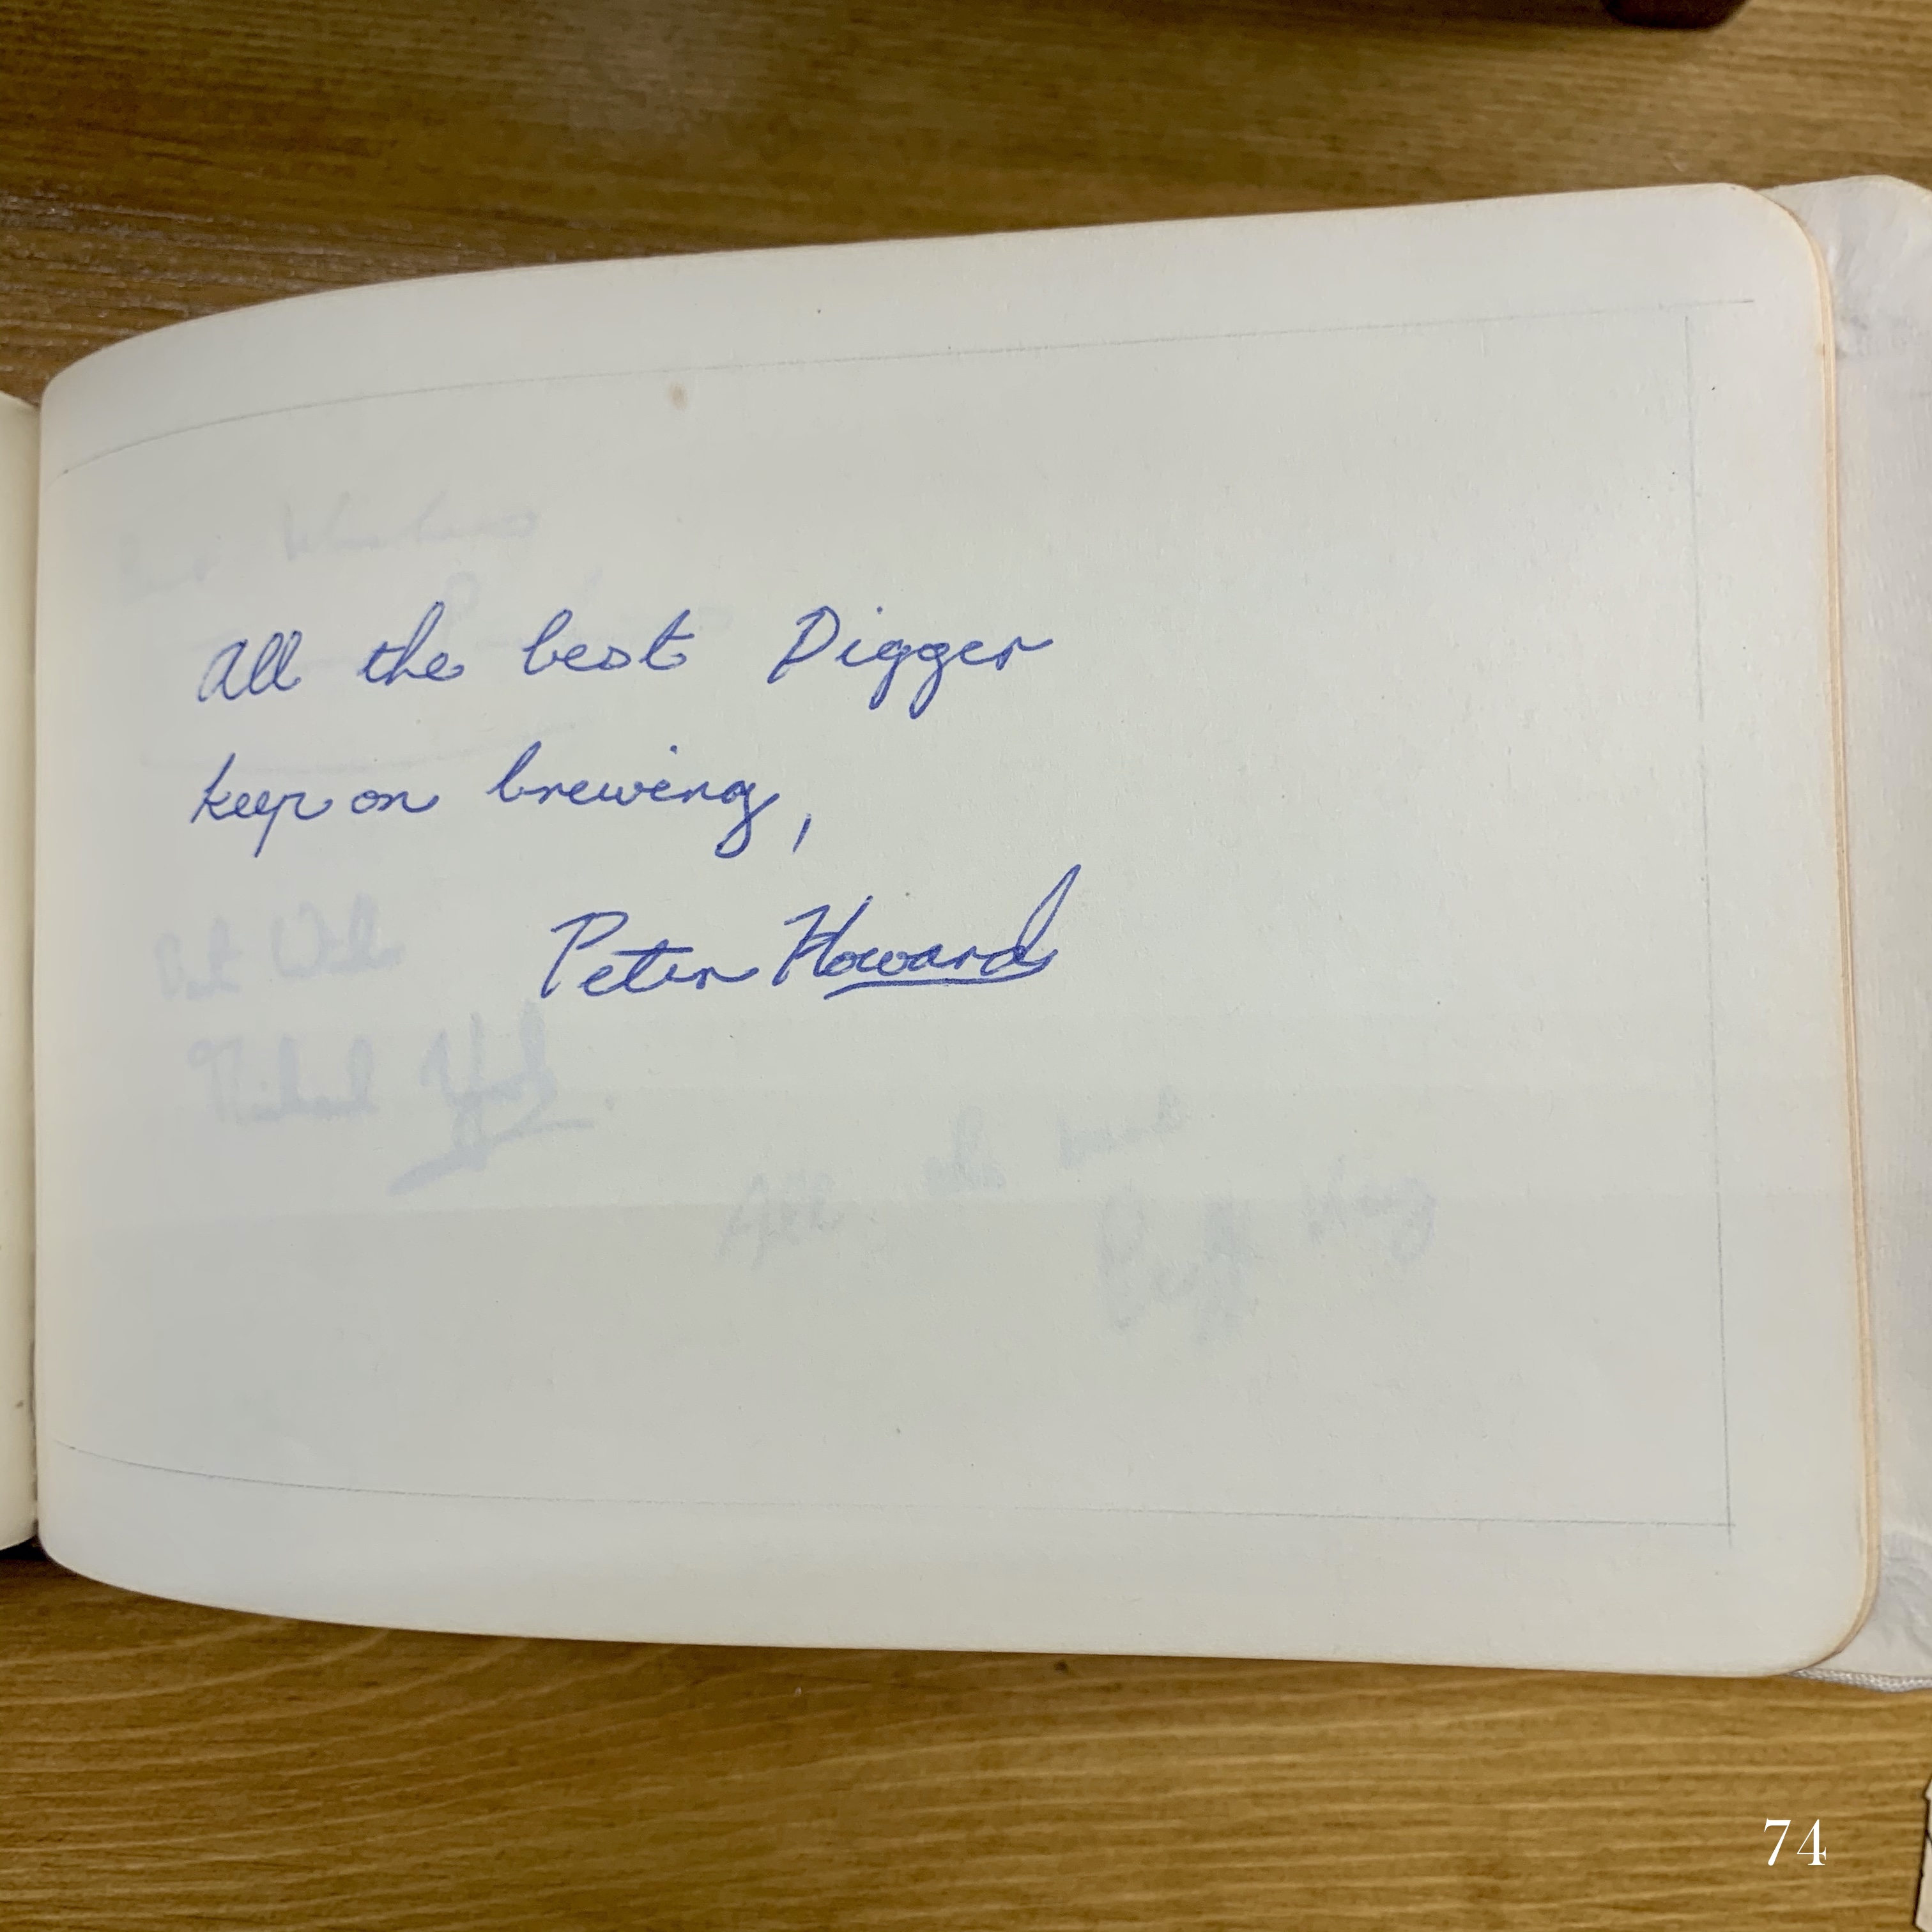 All the best Digger
keep on brewing,
Peter Howard
74